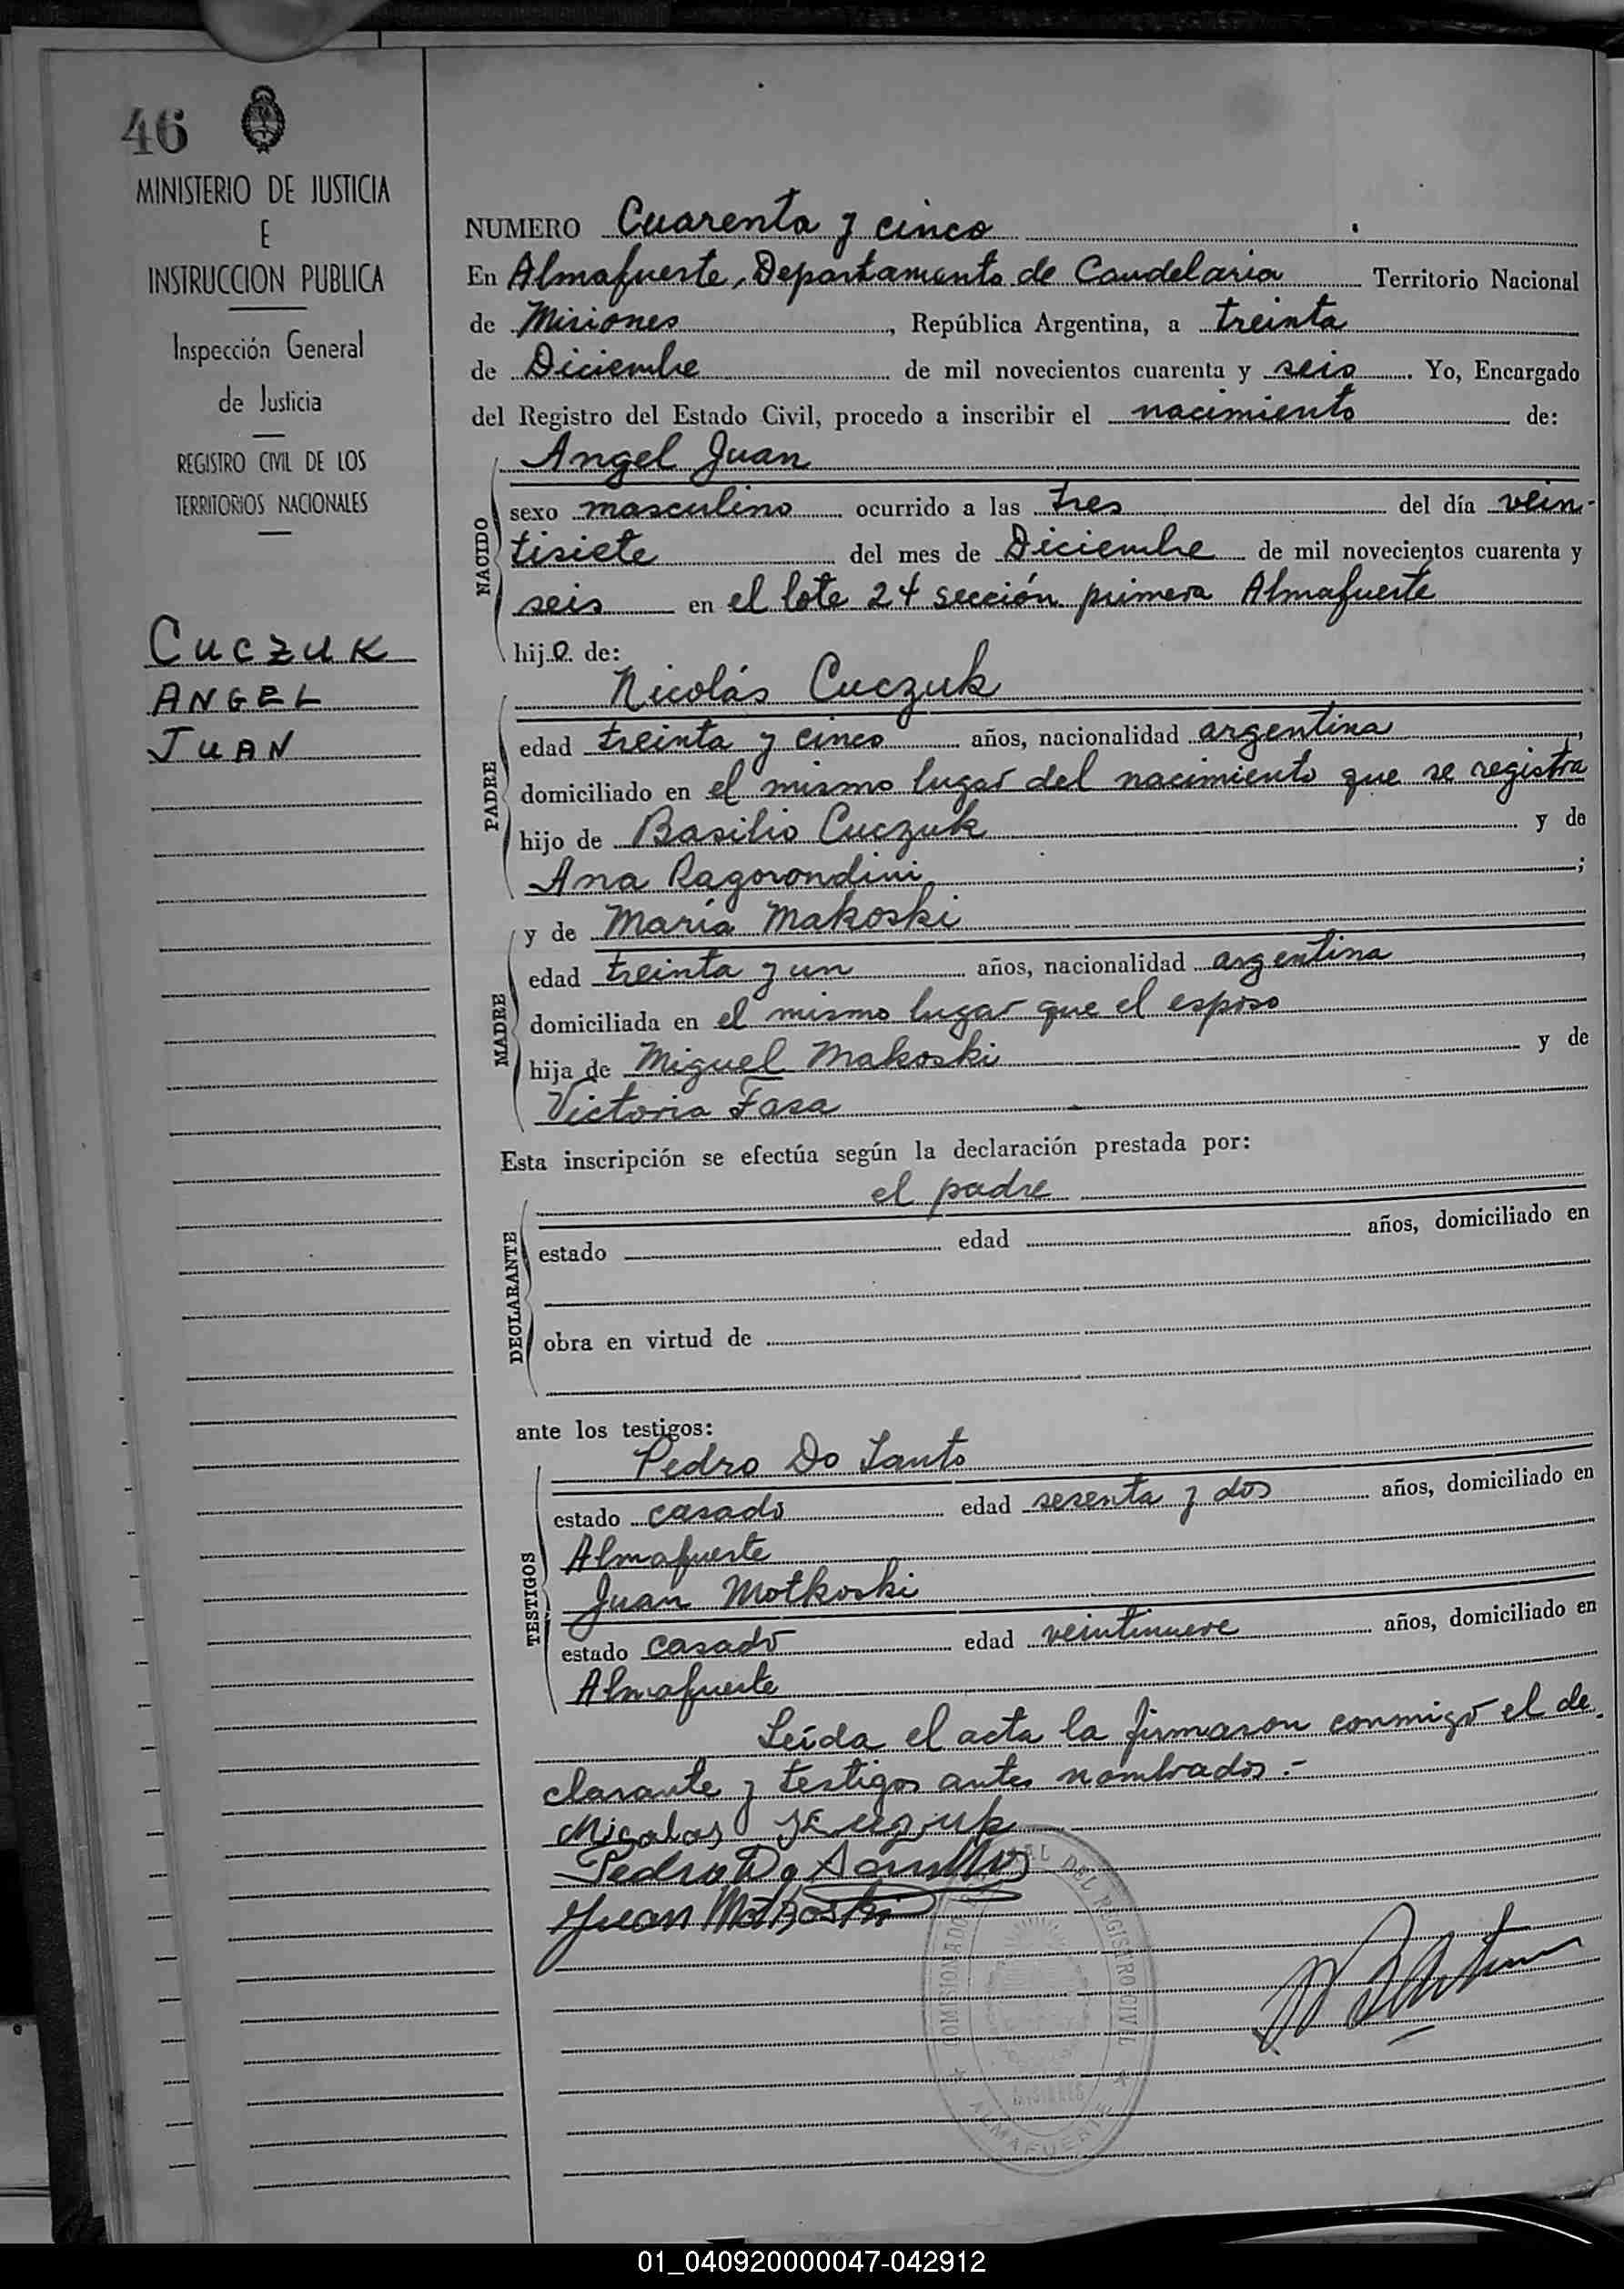 46
MINISTERIO DE JUSTICIA
E
INSTRUCCION PUBLICA
Inspección General
de Justicia
REGISTRO CIVIL DE LOS
TERRITORIOS NACIONALES
CUCZUK
ANGEL
JUAN
NUMERO Cuarenta y cinco
En Almafuerte, Departamento de Candelaria Territorio Nacional
de Misiones, República Argentina, a treinta
de Diciembre de mil novecientos cuarenta y seis. Yo, Encargado
del Registro del Estado Civil, procedo a inscribir el nacimiento de:
Angel Juan
NACIDO
sexo masculino ocurrido a las tres del día vein-
tisiete del mes de Diciembre de mil novecientos cuarenta y
seis en el lote 24 sección primera Almafuerte
hijo de:
Nicolás Cuczuk
PADRE
edad treinta y cinco años, nacionalidad argentina,
domiciliado en el mismo lugar del nacimiento que se registra
hijo de Basilio Cuczuk y de
Ana Ragorondini;
y de María Makoski
MADRE
edad treinta y un años, nacionalidad argentina,
domiciliada en el mismo lugar que el esposo
hija de Miguel Makoski y de
Victoria Fasa
Esta inscripción se efectúa según la declaración prestada por:
el padre
DECLARANTE
estado edad años, domiciliado en
obra en virtud de
ante los testigos:
Pedro Do Santo
TESTIGOS
estado casado edad sesenta y dos años, domiciliado en
Almafuerte
Juan Motkoski
estado casado edad veintinueve años, domiciliado en
Almafuerte
Leída el acta la firmaron conmigo el de-
clarante y testigos antes nombrados.-
Pedro Do
Juan Motkoski
COMISIONADO DEL REGISTRO CIVIL
MISIONES
ALMAFUERTE
01_040920000047-042912